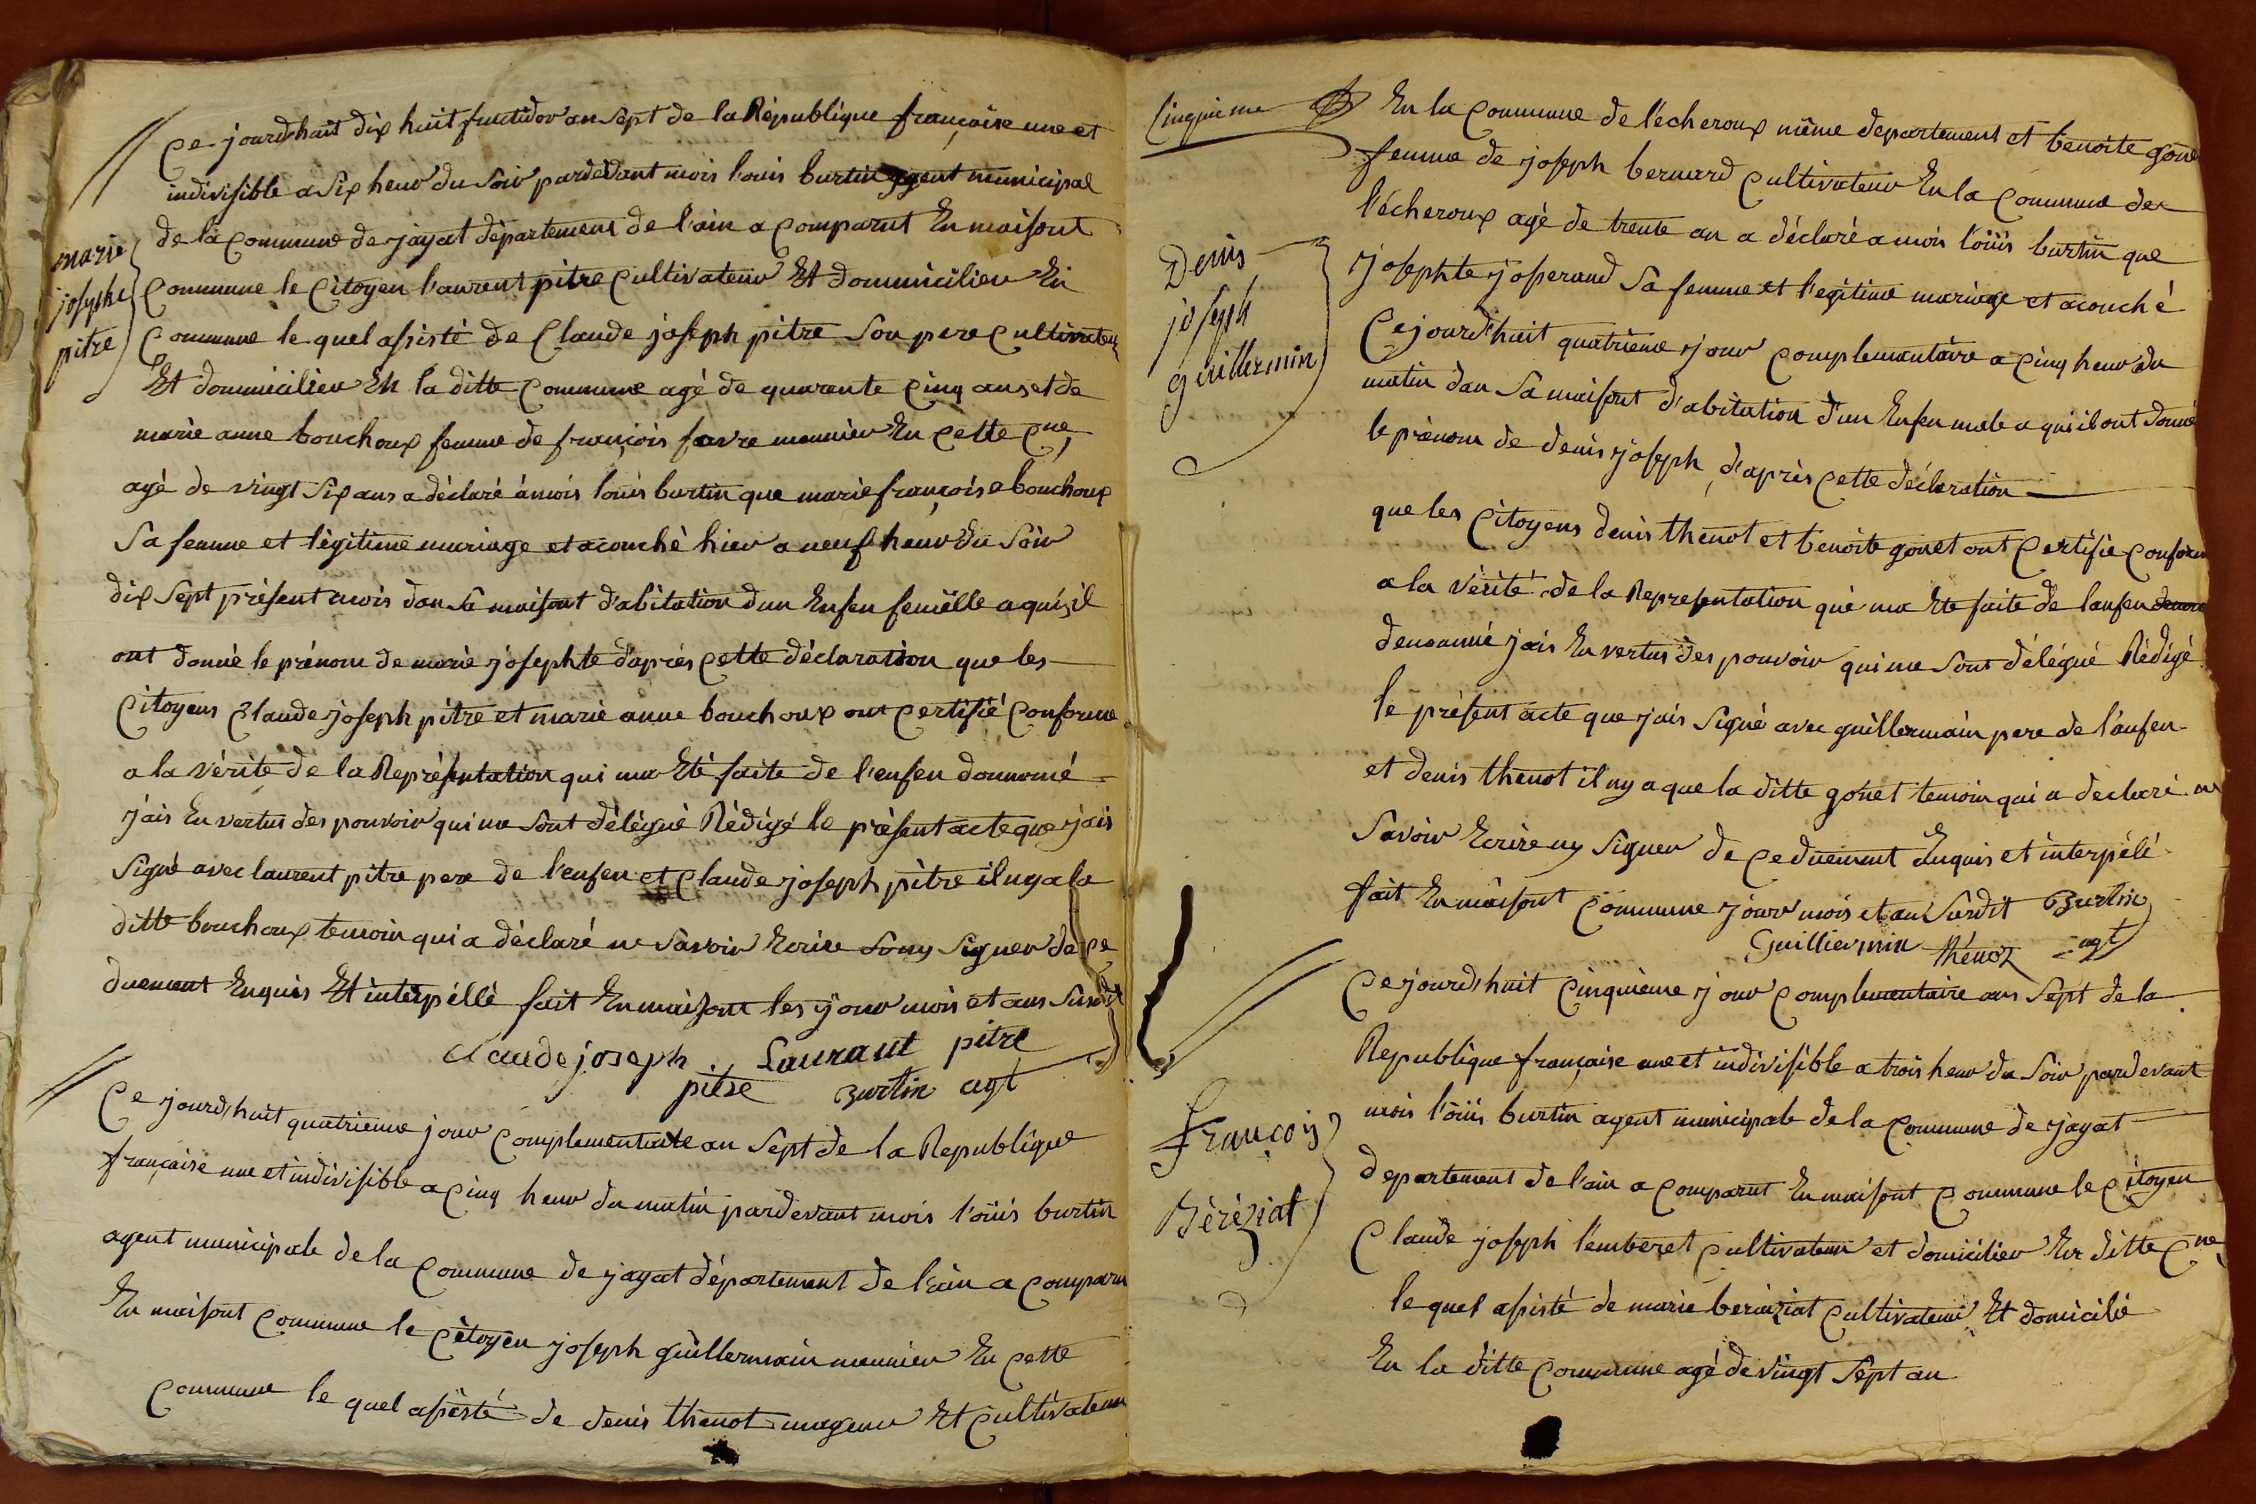 Ce jourdhuit dix huit fructidor an sept de la République française une et
indivisible a six heur du soir pardevant mois louis burtin agent municipal
de la commune de jayat département de l'ain a comparut En maisont
marie
josephe
pitre
Commune le Citoyen laurent pitre Cultivateur Et dommicilier En
Commune le quel asisté de Claude joseph pitre son pere Cultivateur
Et dommicilier En la ditte Commune agé de quarente Cinq ans et de
marie anne bouchoux femme de françois favre meunier En Cette Cne
agé de vingt six ans a déclaré à mois louis burtin que marie françoise bouchoux
Sa femme et légitime mariage et acouché hier a neuf heur du soir
dix sept présent mois dan sa maisont d'abitation dun Enfen femelle a qui il
ont donné le prénom de marie josephte d'après Cette déclaration que les
Citoyens Claude joseph pitre et marie anne bouchoux ont Certifié Conforme
a la vérité de la Représentation qui ma Eté faite de l'enfen donnomé
j'ais En vertus des pouvoir qui me sont délégué Rédigé le présent acte que j'ais
signé avec laurent pitre pere de l'enfen et Claude joseph pitre il ny a la
ditte bouchoux temoin qui a déclaré ne savoir Ecrire ny signer de ce
duement Enquis Et interpéllé fait En maisont les jour mois et ans susdit
Claude joseph Laurant pitre
pitre Burtin agt
Ce jourdhuit quatrieme jour Complementaire an sept de la Republique
française une et indivisible a Cinq heur du matin pardevant mois l'ouis burtin
agent municipale de la Commune de jayat département de l'ain a Comparu
En maisont Commune le Citoyen joseph guillermain meunier En Cette
Commune le quel asisté de denis thenot Et Cultivateur
Cinquieme
En la Commune de l'écheroux même departement et benoite gone
femme de joseph bernard Cultivateur En la Commune de
l'écheroux agé de trente an a déclaré a mois l'ouis burtin que
Denis
joseph
guillermin
josephte josperand Sa femme et l'egitime mariage et acouché
Cejourdhuit quatriéme jour Complementaire a Cinq heur du
matin dan Sa maisont d'abitation d'un Enfen male a qui il ont donné
le prénom de denis joseph d'après Cette déclaration
que les Citoyens denis thenot et benoite gonet ont Certifie Conform
a la vérité de la Representation qui ma Ete faite de lanfen
denommé jais En vertus des pouvoir qui me sont délégué Rédigé
le présent acte que jais signé avec guillermain pere de l'anfen
et denis thenot il ny a que la ditte gonet temoin qui a declaré ne
Savoir Ecrire ny signer de ce duement Enquis et interpélé
fait En maisont Commune jour mois et an susdit Burtin
Guilliermin thénot agt
Ce jourdhuit Cinquième jour Complementaire an sept de la
Republique française une et indivisible a trois heur du soir pardevant
mois l'ouis burtin agent municipale de la Commune de jayat
François
Béréziat
departement de l'ain a Comparut En maisont Commune le Citoyen
Claude joseph l'emberet Cultivateur et domicilier En ditte Cne
le quel asisté de marie beraiziat Cultivateur Et domicilié
En la ditte Commune agé de vingt sept an